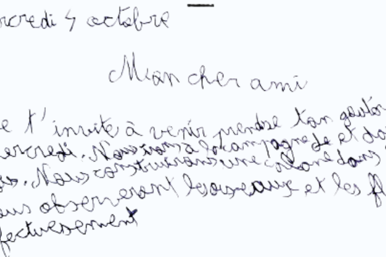 rcredi 4 octobre
Mon cher ami
e t'invite à venir prendre ton goûter
ercredi. Nous irons à la campagne et da
es. Nous construirons une cabane dans
ous observerons les oiseaux et les fl
fectueusement